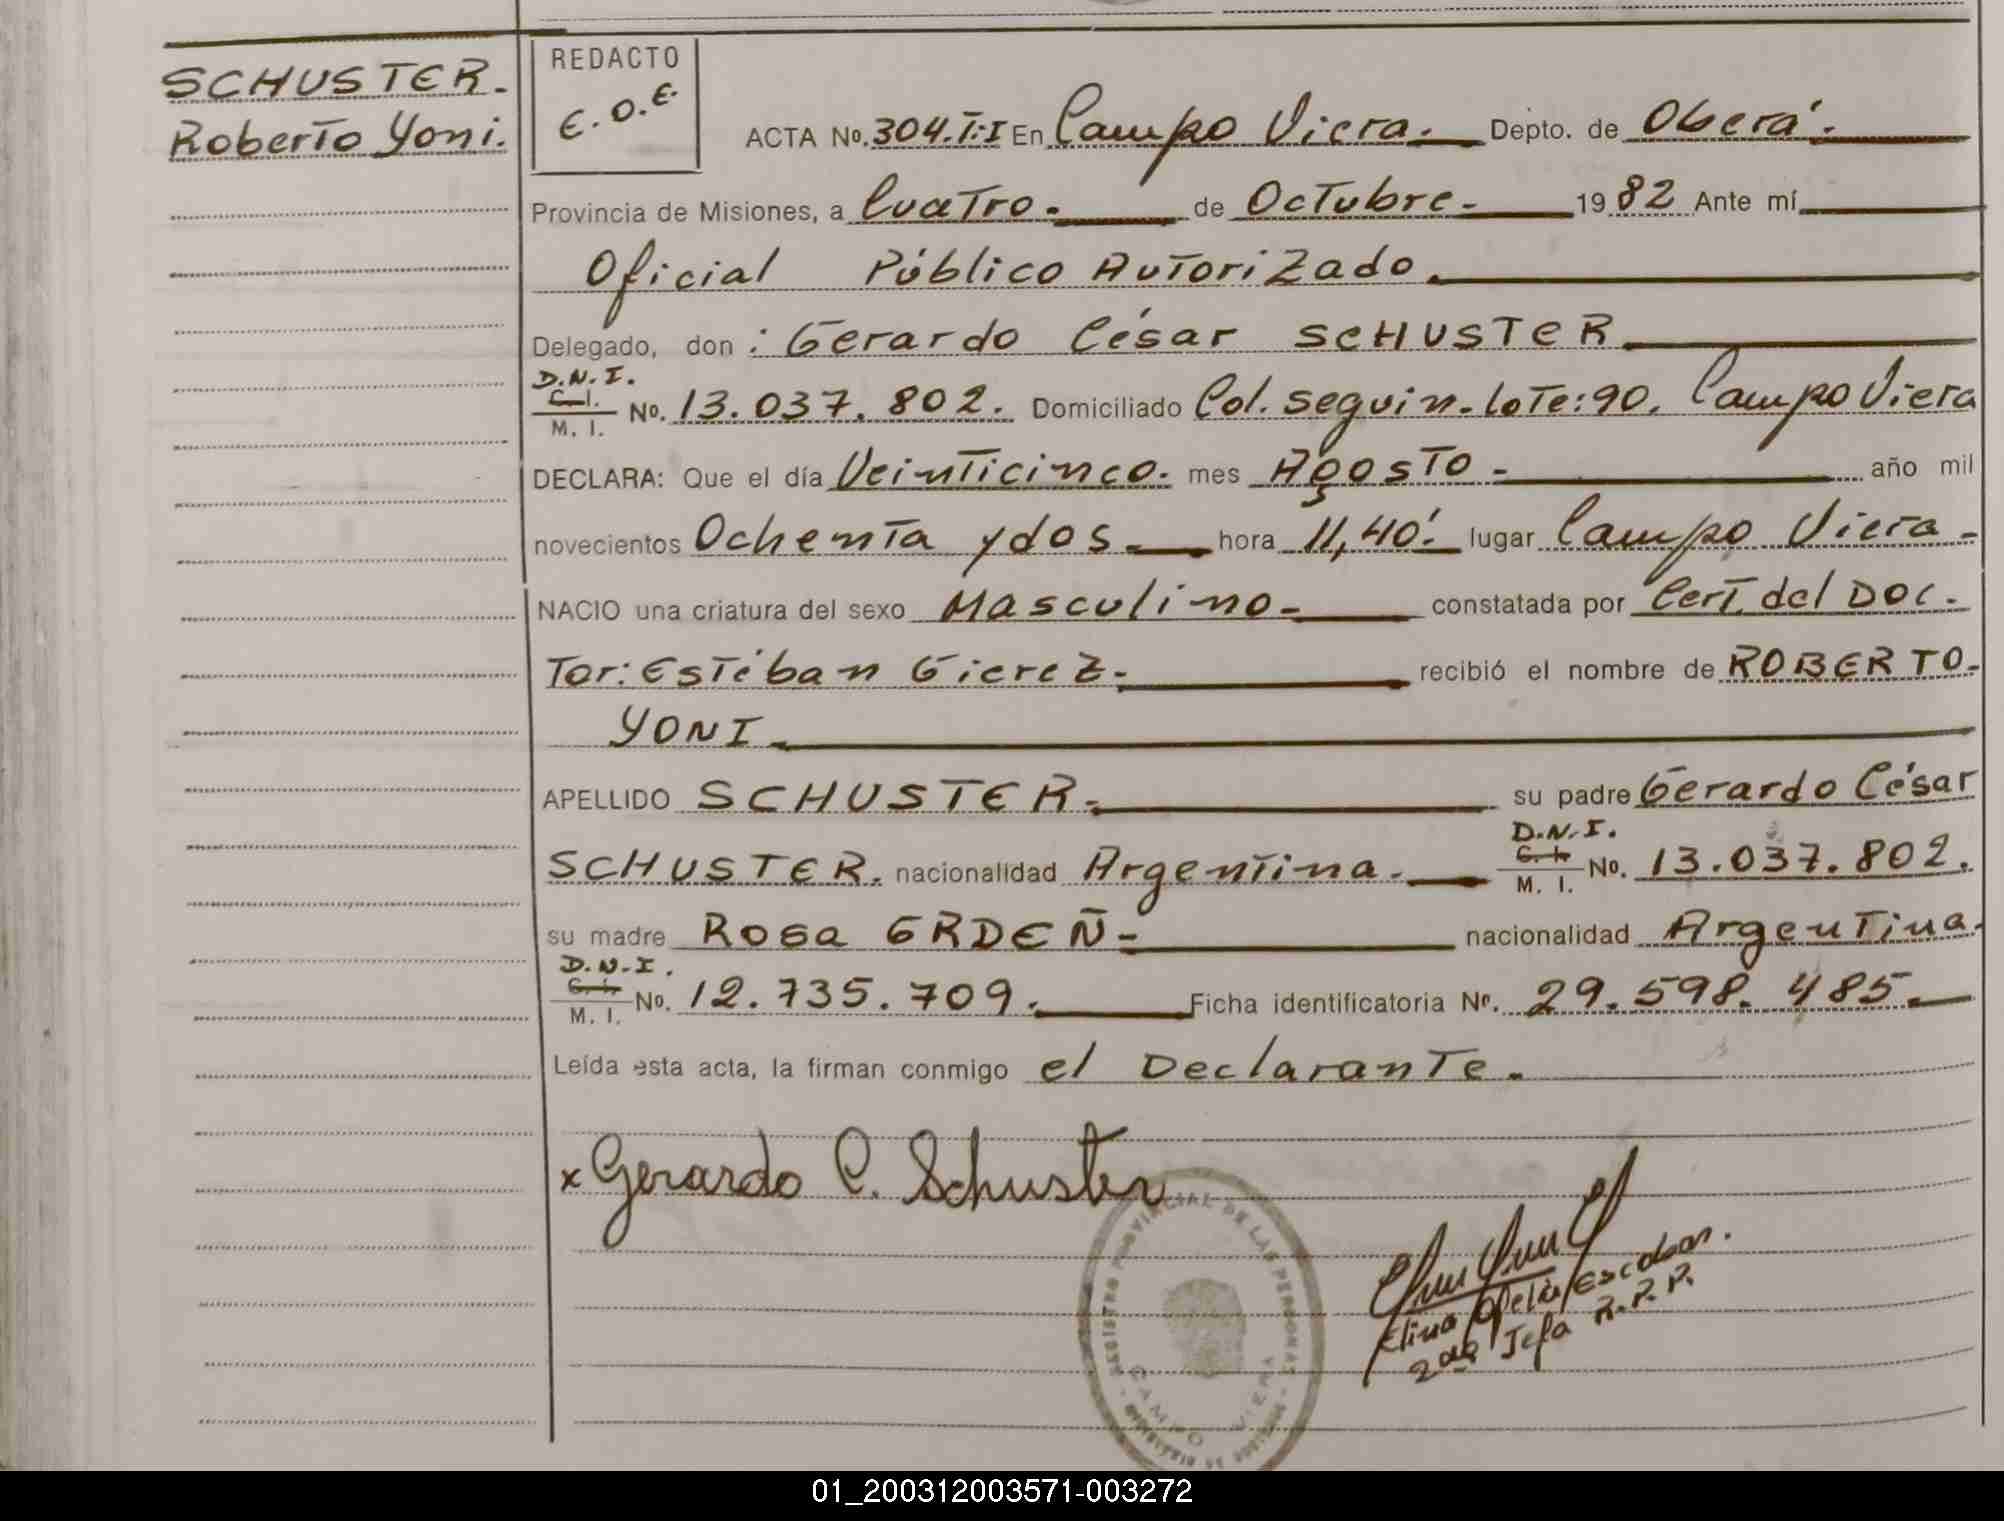 SCHUSTER.
Roberto Yoni.
REDACTO
E.O.E.
ACTA No. 304.T:I En Campo Viera. Depto. de Oberá.
Provincia de Misiones, a Cuatro. de Octubre. 1982 Ante mí
Oficial Público Autorizado.
Delegado, don: Gerardo César SCHUSTER
D.N.I.
C.I.
M. I. No. 13.037.802. Domiciliado Col. Seguin. Lote: 90. Campo Viera
DECLARA: Que el día Veinticinco. mes Agosto. año mil
novecientos Ochenta y dos. hora 11,40'. lugar Campo Viera.
NACIO una criatura del sexo Masculino. constatada por Cert. del Doc.
Tor: Estéban Gierez. recibió el nombre de ROBERTO.
YONI
APELLIDO SCHUSTER. su padre Gerardo César
SCHUSTER. nacionalidad Argentina.
D.N.I.
C.I.
M. I. No. 13.037.802.
su madre Rosa ERDEÑ. nacionalidad Argentina.
D.N.I.
C.I.
M. I. No. 12.735.709. Ficha identificatoria No. 29.598.485.
Leída esta acta, la firman conmigo el Declarante.
x Gerardo C. Schuster
REGISTRO PROVINCIAL DE LAS PERSONAS
CAMPO VIERA
Escobar.
2da Jefa R.P.P.
01_200312003571-003272